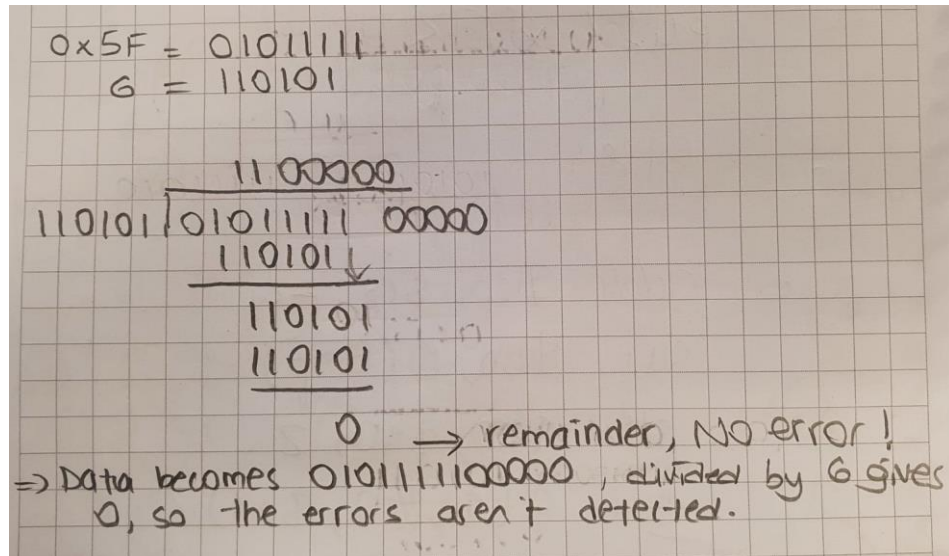 0x5F = 01011111
G = 110101
1100000
110101 01011111 00000
110101
110101
110101
0 → remainder, No error!
=> Data becomes 0101111100000, divided by G gives
0, so the errors aren't detected.